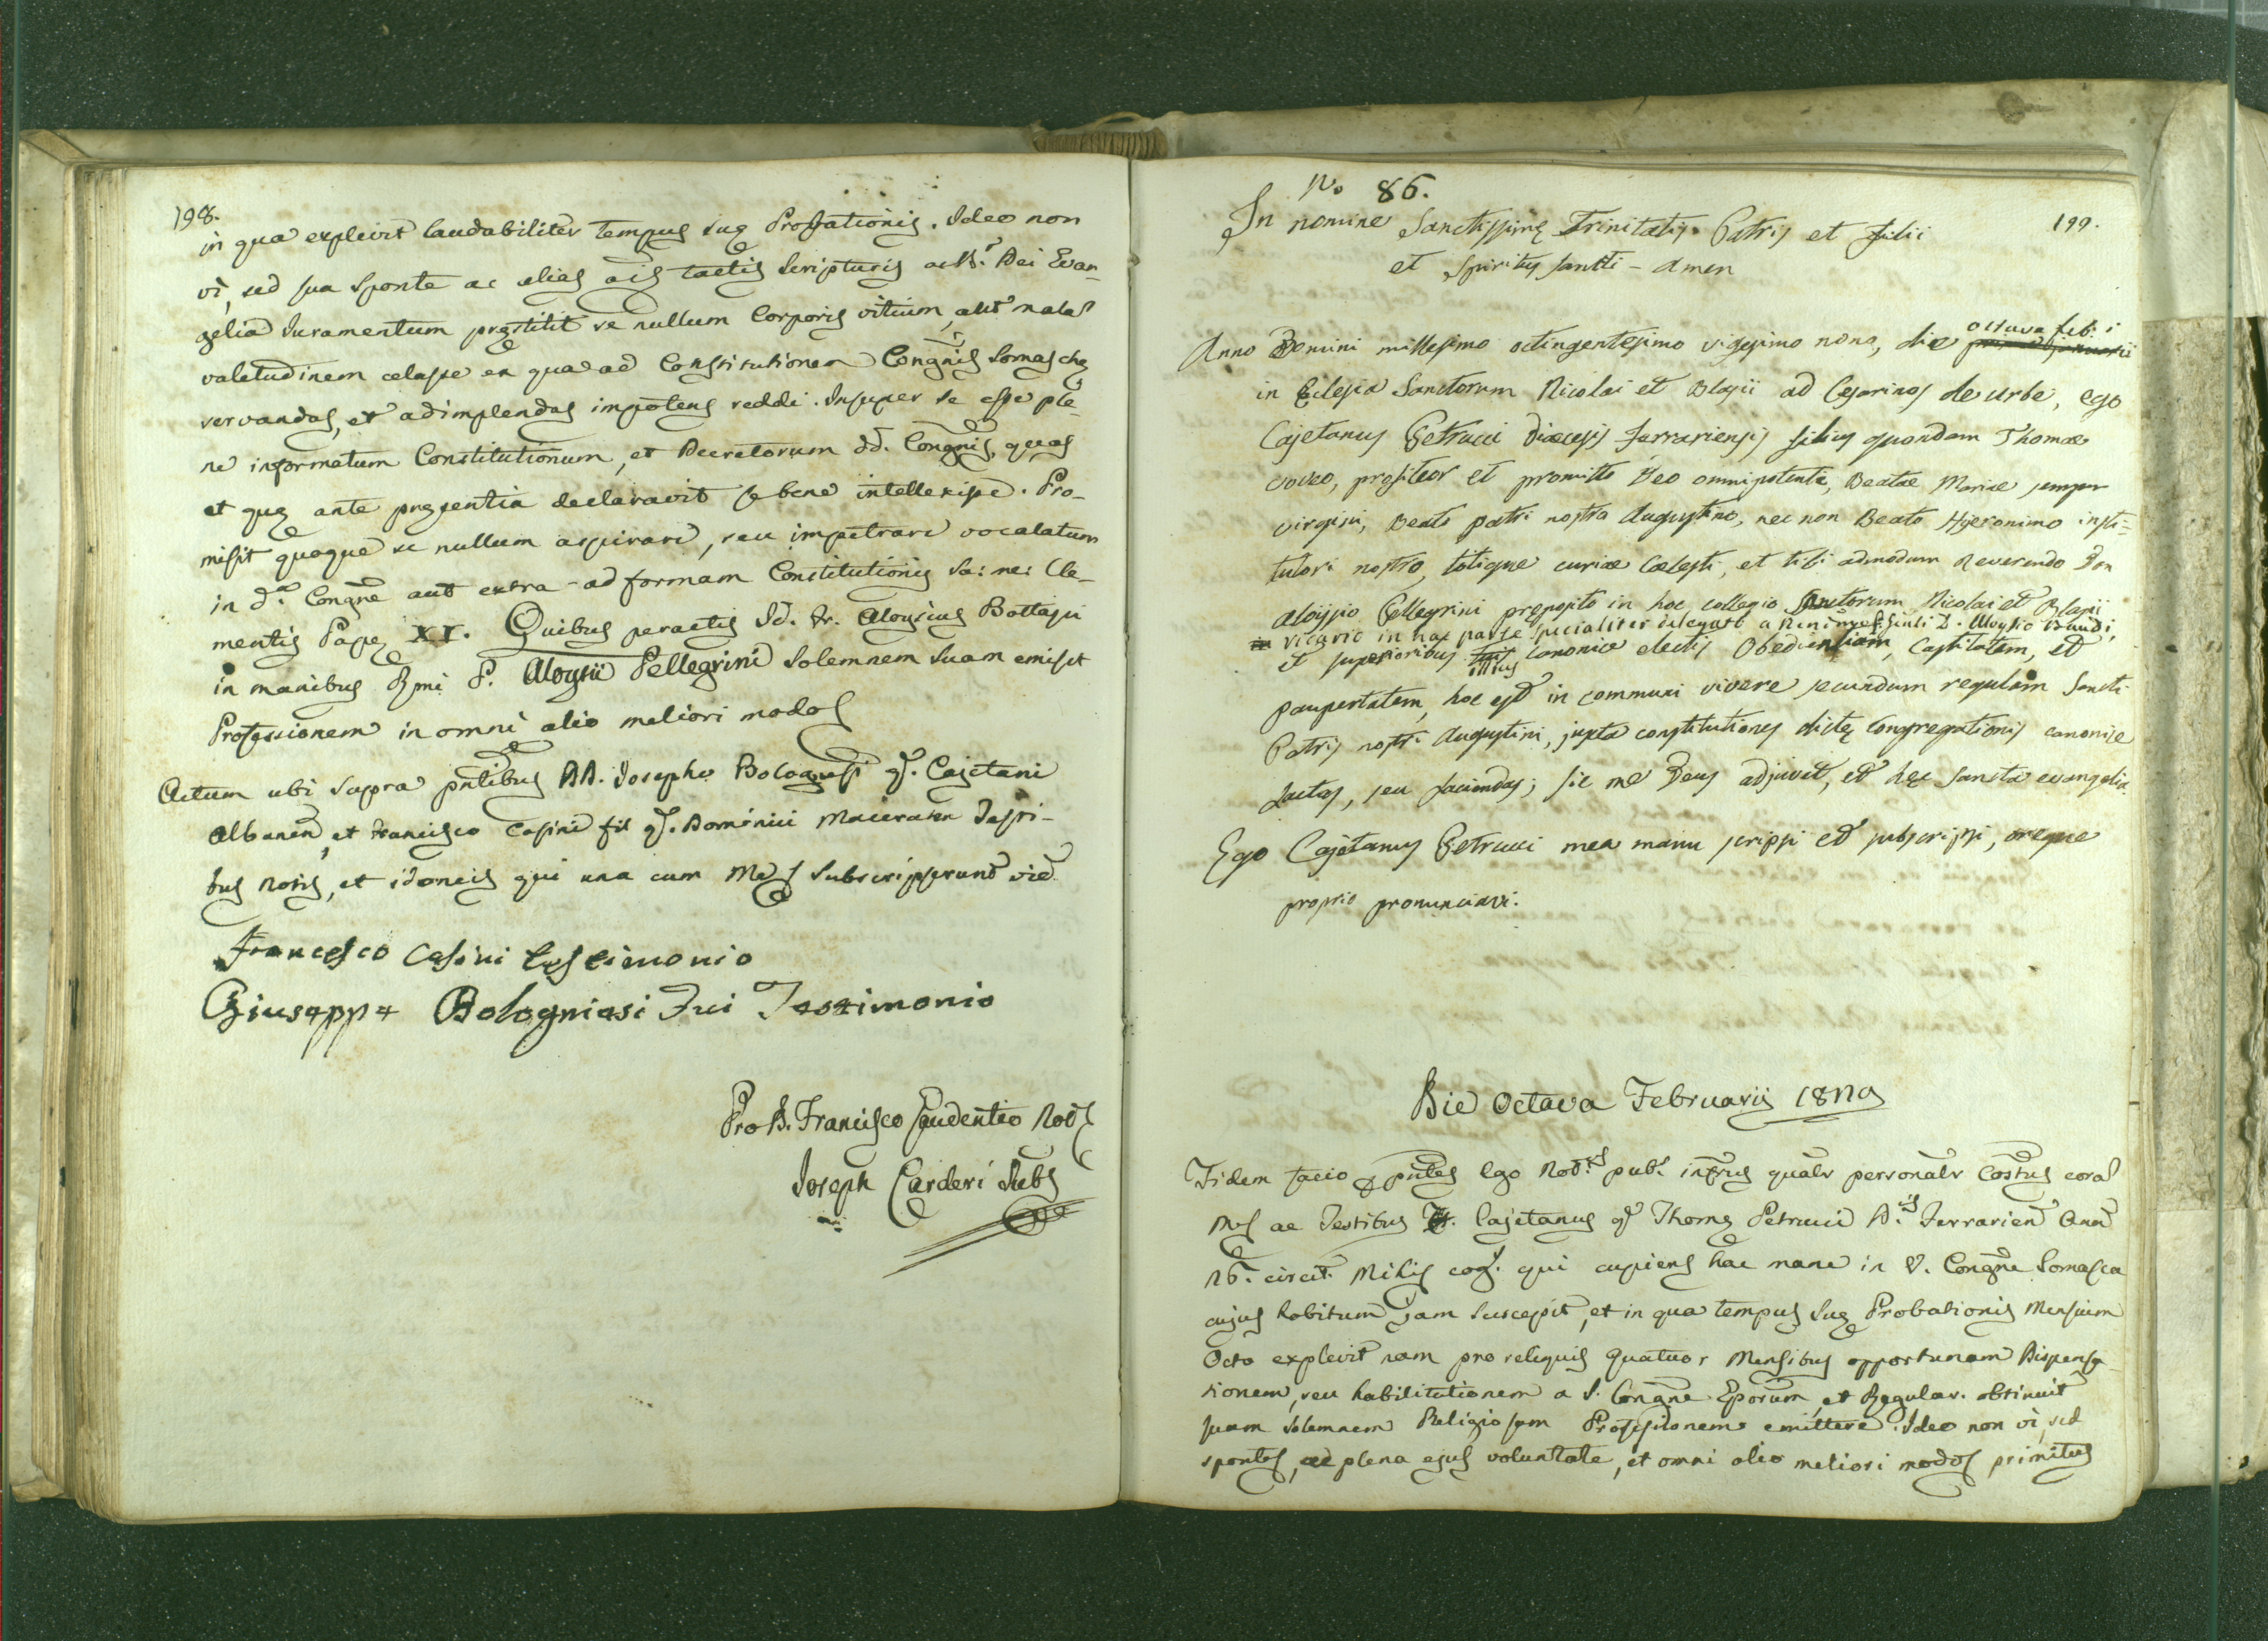 198.
in qua explevit laudabiliter tempus suę Probationis. Ideo non
vi, sed sua sponte ac alias tactis Scripturis ac Dei Evan-
gelia Juramentum pręstitit se nullum Corporis vitium, aut mala
valetudinem celasse ex qua ad Constitutionem Congnis Somaschę
servandas, et adimplendas impotens reddi. Insuper se esse ple-
ne informatum Constitutionum, et Decretorum dd. Congnis, quas
et quę ante pręsentia declaravit se bene intellexisse. Pro-
misit quoque se nullum aspirare, seu impetrare vocalatum
in da. Congne aut extra ad formam Constitutionis Sa: me: Cle-
mentis Papę XI. Quibus peractis Dd. Fr. Aloysius Bottagu
in manibus Rmi P. Aloysii Pellegrini Solemnem suam emisit
Professionem in omni alio meliori modo
Actum ubi supra pntibus DD. Josepho Bolognesi qd. Cajetani
Albanen, et Francisco Casini fil qd. Dominici Maceraten Testi-
bus notis, et idoneis qui una cum Me Subscripserunt vid.
Francesco Casini testimonio
Giuseppe Bologniesi Fui Testimonio
Pro D. Francisco Gaudentio Not
Joseph Carderi Subs
No 86.
199.
In nomine Sanctissimę Trinitatis Patris et Filii
et Spiritus Sancti - Amen
octava feb:i
Anno Domini millesimo octingentesimo vigesimo nono, die prima januarii
in Eclesia Sanctorum Nicolai et Blasii ad Cesarinos de Urbe, ego
Cajetanus Petrucci Diœcesis Ferrariensis filius quondam Thomae
voveo, profiteor et promitto Deo omnipotenti, Beatae Mariae semper
virgini, Beato patri nostro Augustino, nec non Beato Hyeronimo insti=
tutori nostro, totique curiae Cœlesti, et tibi admodum Reverendo Don
Aloysio Pellegrini preposito in hoc collegio Sanctorum Nicolai et Blasii
vicario in hac parte specialiter delegato a Rmo D. Aloysio Brandi,
et superioribus canonice electis Obedientiam, Castitatem, et
illius
paupertatem, hoc est in communi vivere secundum regulam Sancti
Patris nostri Augustini, juxta constitutiones dictę Congregationis canonice
factas, seu faciendas; sic me Deus adjuvet, et hęc sancta evangelia
Ego Cajetanus Petrucci mea manu scripsi et subscripsi, oreque
proprio pronunciavi.
Die Octava Februarii 1829
Fidem facio pntes Ego Nots. pubs. infrus qualr personalr Costus cora
Me ac Testibus Fr. Cajetanus qd Thomę Petrucci Ferrarien
circit. Mihi cog. qui cupiens hac mane in V. Congne Somasca
cujus habitum jam suscepit, et in qua tempus Suę Probationis Mensium
Octo explevit nam pro reliquis quatuor Mensibus opportunam Dispensa-
tionem, seu habilitationem a S. Congne Eporum, et Regular. obtinuit
suam solemnem Religiosam Professionem emittere. Ideo non vi, sed
sponte, ac plena ejus voluntate, et omni alio meliori modo primitus